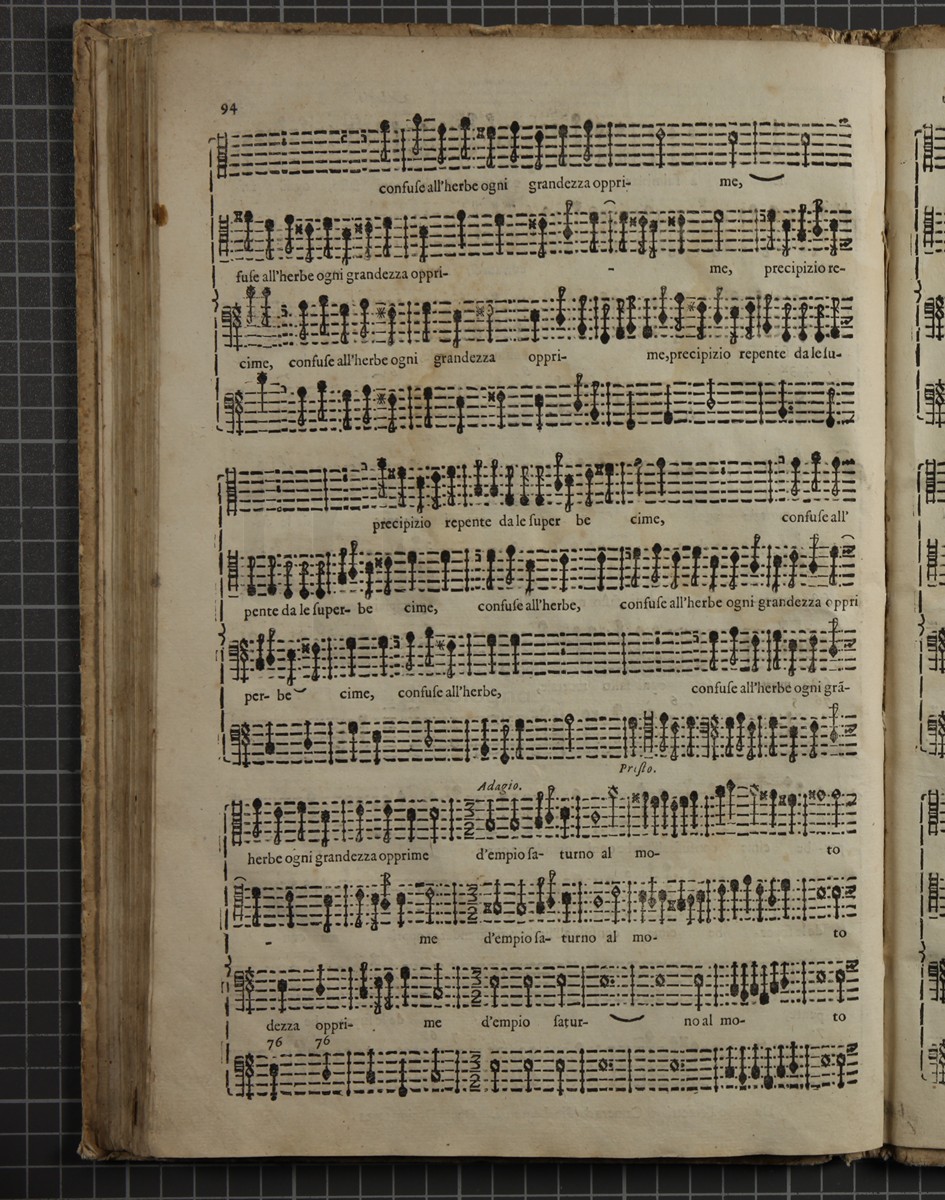 94
confuſe all'herbe ogni grandezza oppri- me,
fuſe all'herbe ogni grandezza oppri- - me, precipizio re-
cime, confuſe all'herbe ogni grandezza oppri- me,precipizio repente da le ſu-
precipizio repente da le ſuper be cime, confuſe all'
pente da le ſuper- be cime, confuſe all'herbe, confuſe all'herbe ogni grandezza oppri
per- be cime, confuſe all'herbe, confuſe all'herbe ogni grã-
Preſto.
Adagio.
3 2
herbe ogni grandezza opprime d'empio ſa- turno al mo- to
3 2
- me d'empio ſa- turno al mo- to
3 2
dezza oppri- me d'empio ſatur- no al mo- to
76 76
3 2